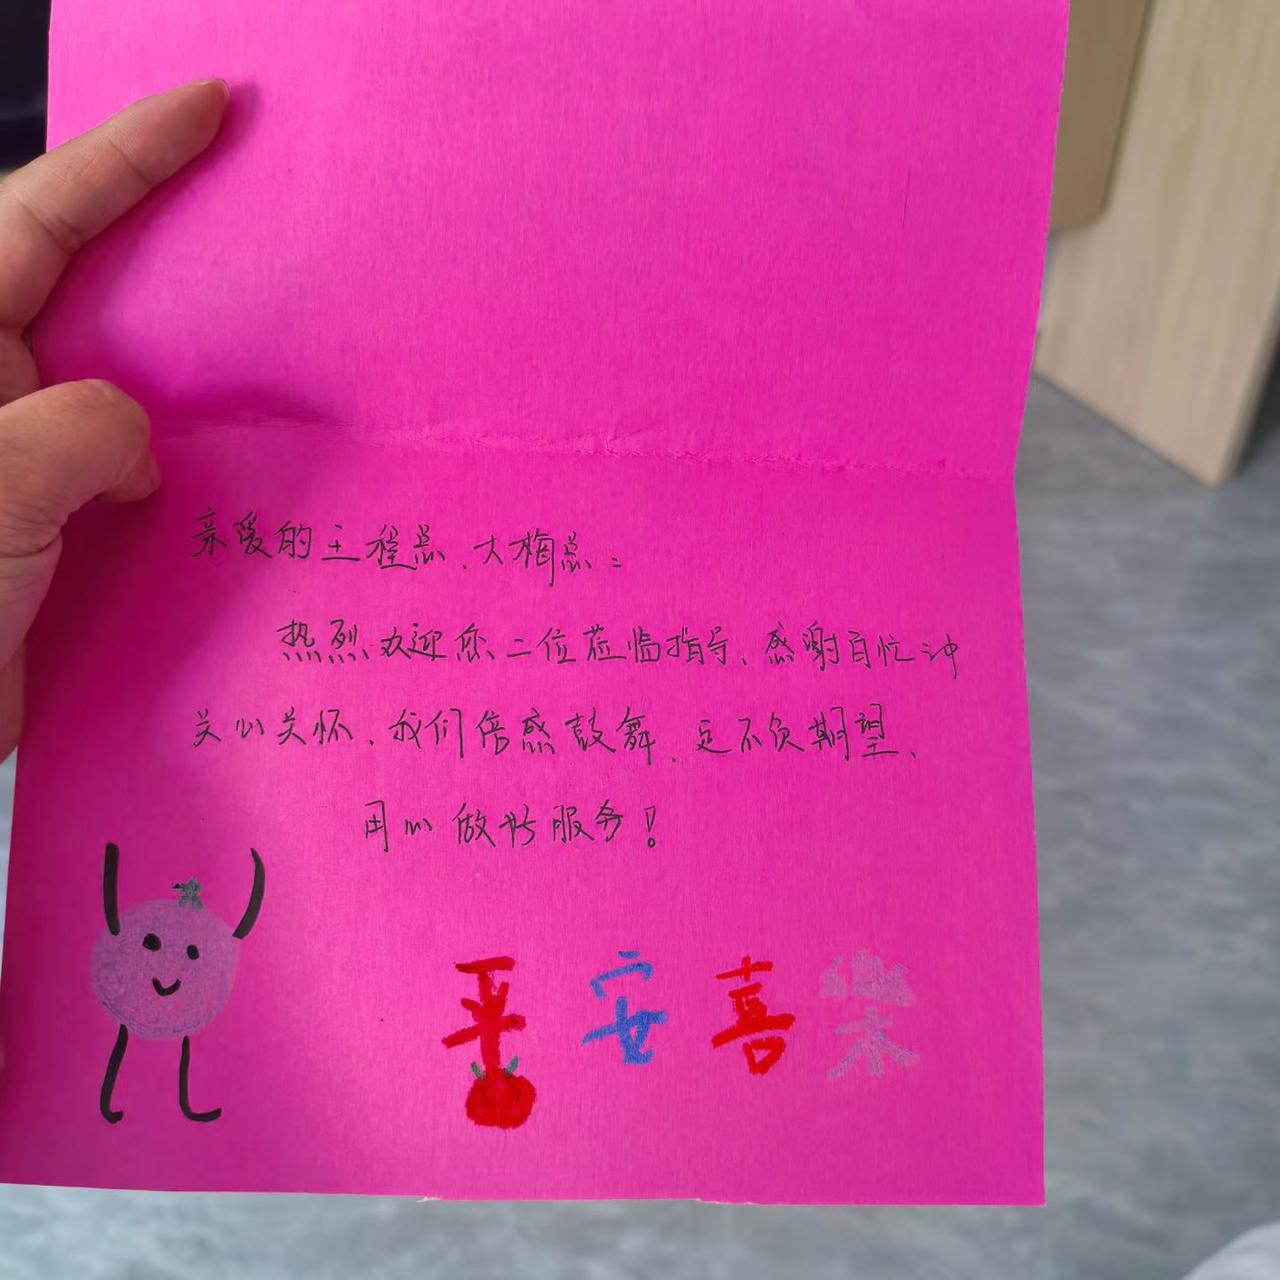 亲爱的王程总、大梅总：
热烈欢迎您二位莅临指导、感谢百忙之中
关心关怀、我们倍感鼓舞、定不负期望、
用心做好服务！
平安喜樂